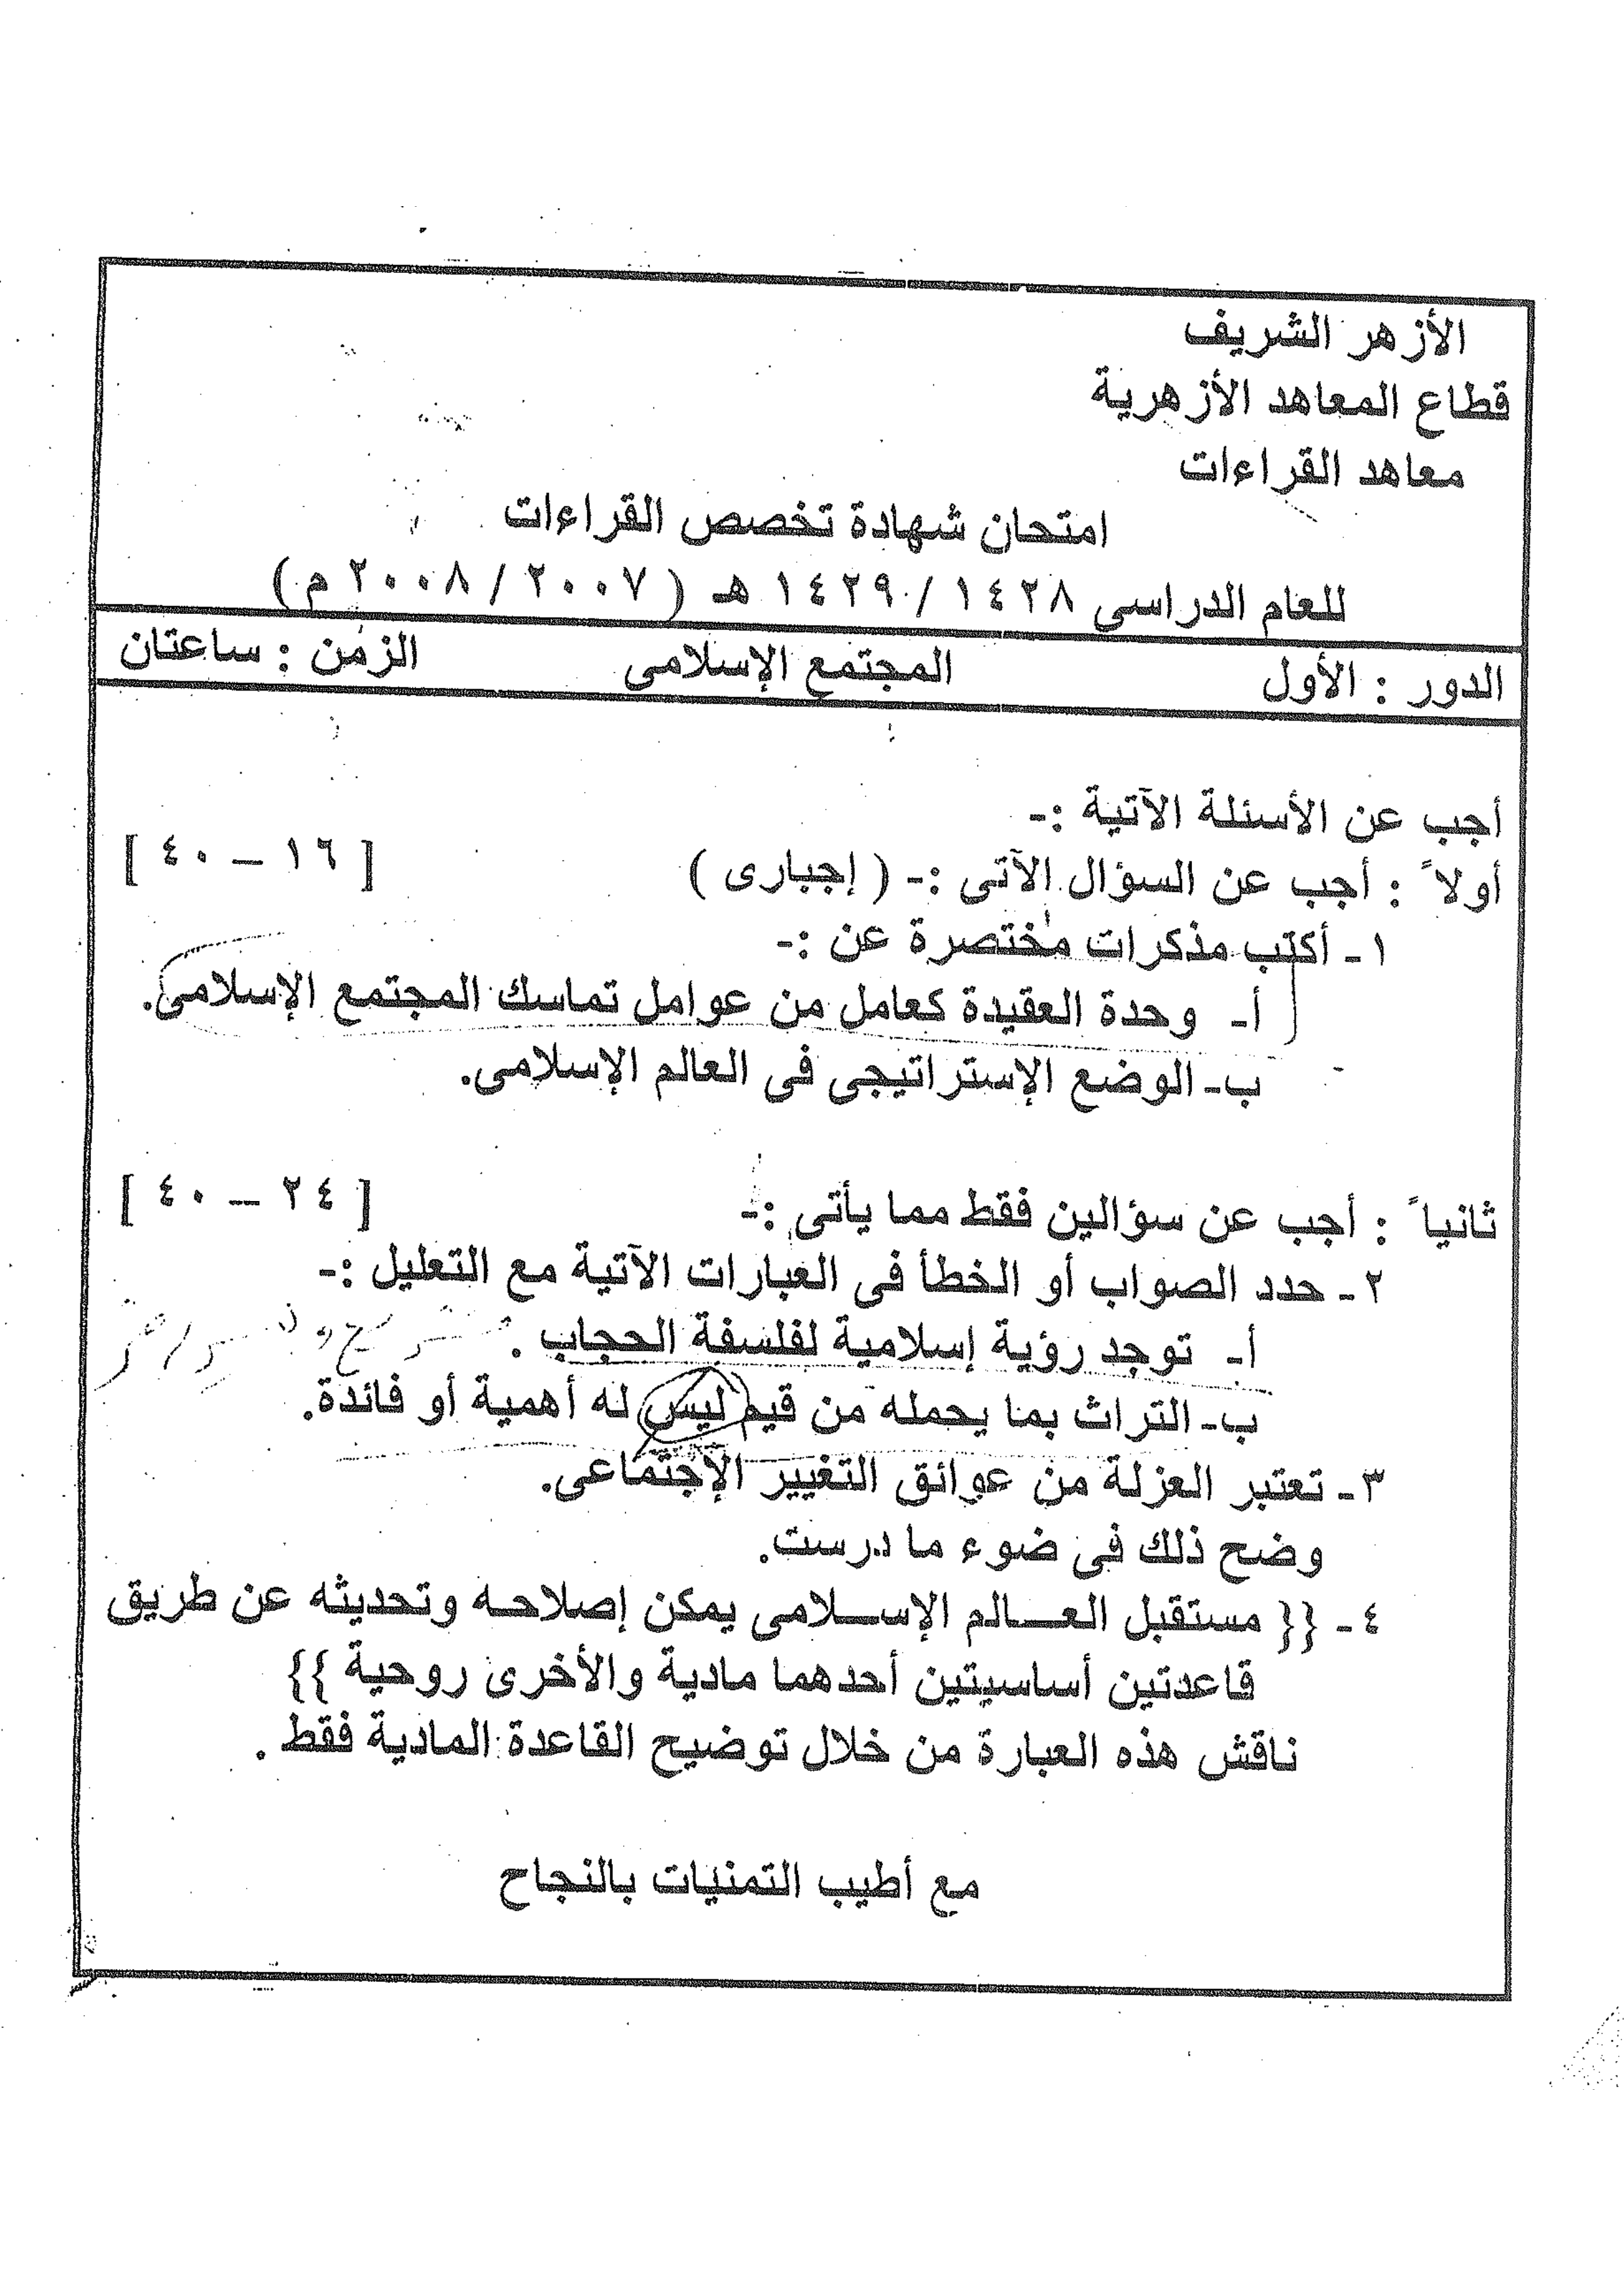 الأزهر الشريف
قطاع المعاهد الأزهرية
معاهد القراءات
امتحان شهادة تخصص القراءات
للعام الدراسى ١٤٢٨ / ١٤٢٩ هـ ( ٢٠٠٧ / ٢٠٠٨ م )
الدور : الأول المجتمع الإسلامى الزمن : ساعتان
أجب عن الأسئلة الآتية :-
أولاً : أجب عن السؤال الآتى :- ( إجبارى ) [ ١٦ – ٤٠ ]
١- أكتب مذكرات مختصرة عن :-
أ- وحدة العقيدة كعامل من عوامل تماسك المجتمع الإسلامى.
ب- الوضع الإستراتيجى فى العالم الإسلامى.
ثانياً : أجب عن سؤالين فقط مما يأتى :- [ ٢٤ – ٤٠ ]
٢- حدد الصواب أو الخطأ فى العبارات الآتية مع التعليل :-
أ- توجد رؤية إسلامية لفلسفة الحجاب .
ب- التراث بما يحمله من قيم ليس له أهمية أو فائدة.
٣- تعتبر العزلة من عوائق التغيير الإجتماعى.
وضح ذلك فى ضوء ما درست.
٤- {{ مستقبل العـــالم الإســـلامى يمكن إصلاحـه وتحديثه عن طريق
قاعدتين أساسيتين أحدهما مادية والأخرى روحية }}
ناقش هذه العبارة من خلال توضيح القاعدة المادية فقط .
مع أطيب التمنيات بالنجاح